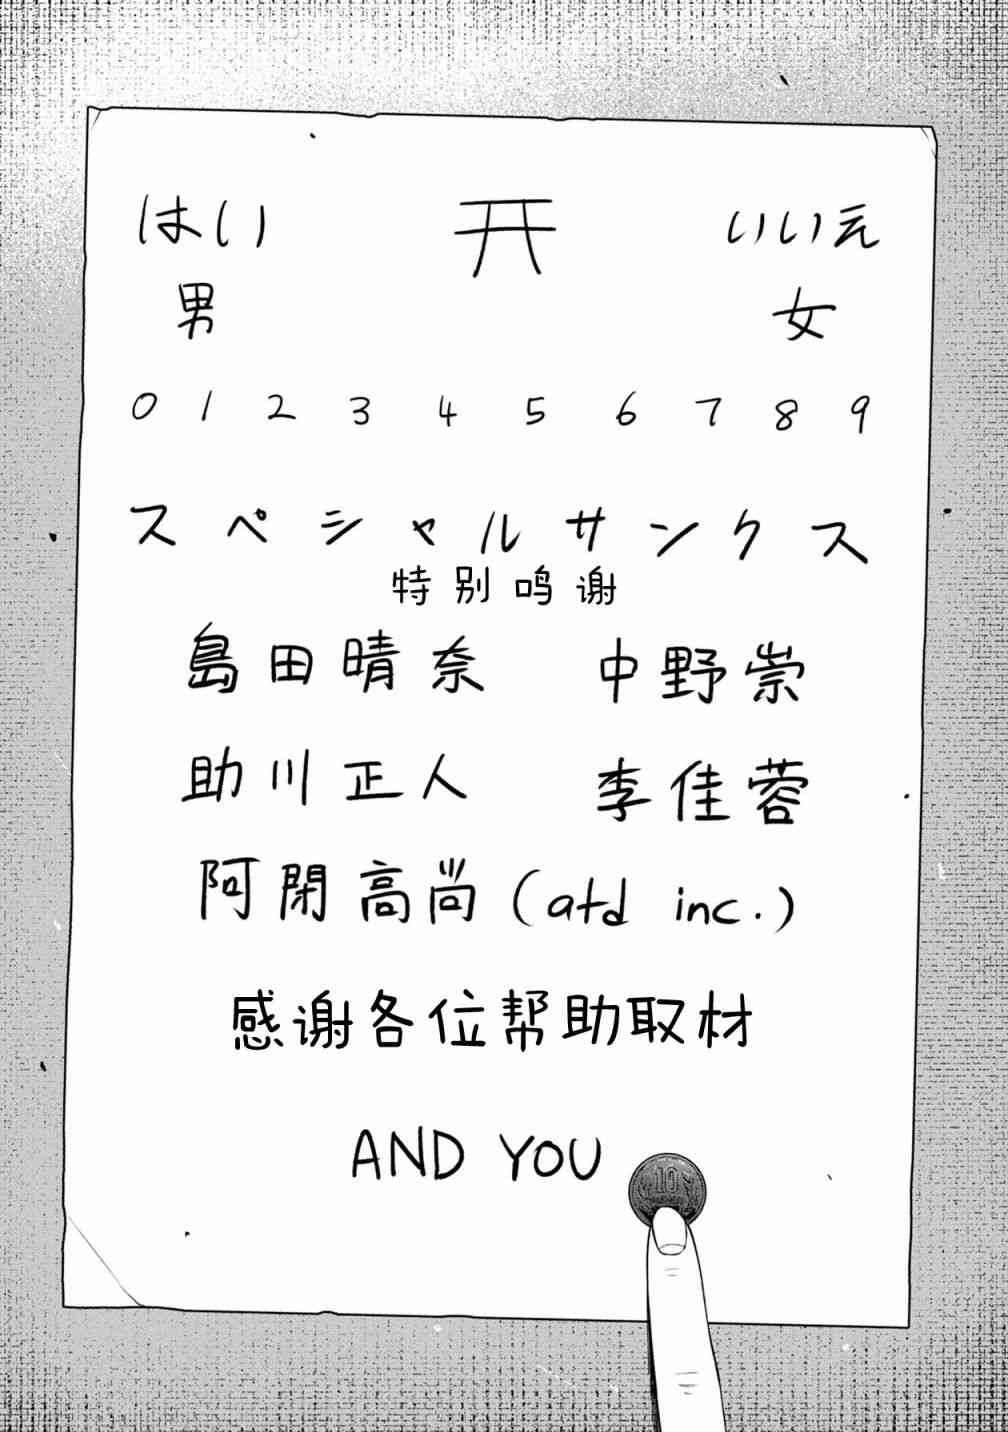 はい いいえ
男 女
0 1 2 3 4 5 6 7 8 9
スペシャルサンクス
特别鸣谢
島田晴奈 中野崇
助川正人 李佳蓉
阿閉高尚(atd inc.)
感谢各位帮助取材
AND YOU
10